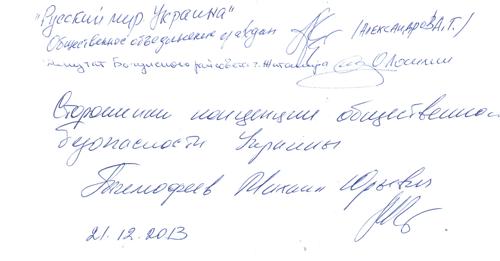 "Русский мир Украина"
Общественное объединение граждан (Александров А.Т.)
Депутат районова г. Житомира
Сторонники концепции общественной
безопасности Украины
Тимофеев Михаил Юрьевич
21.12.2013